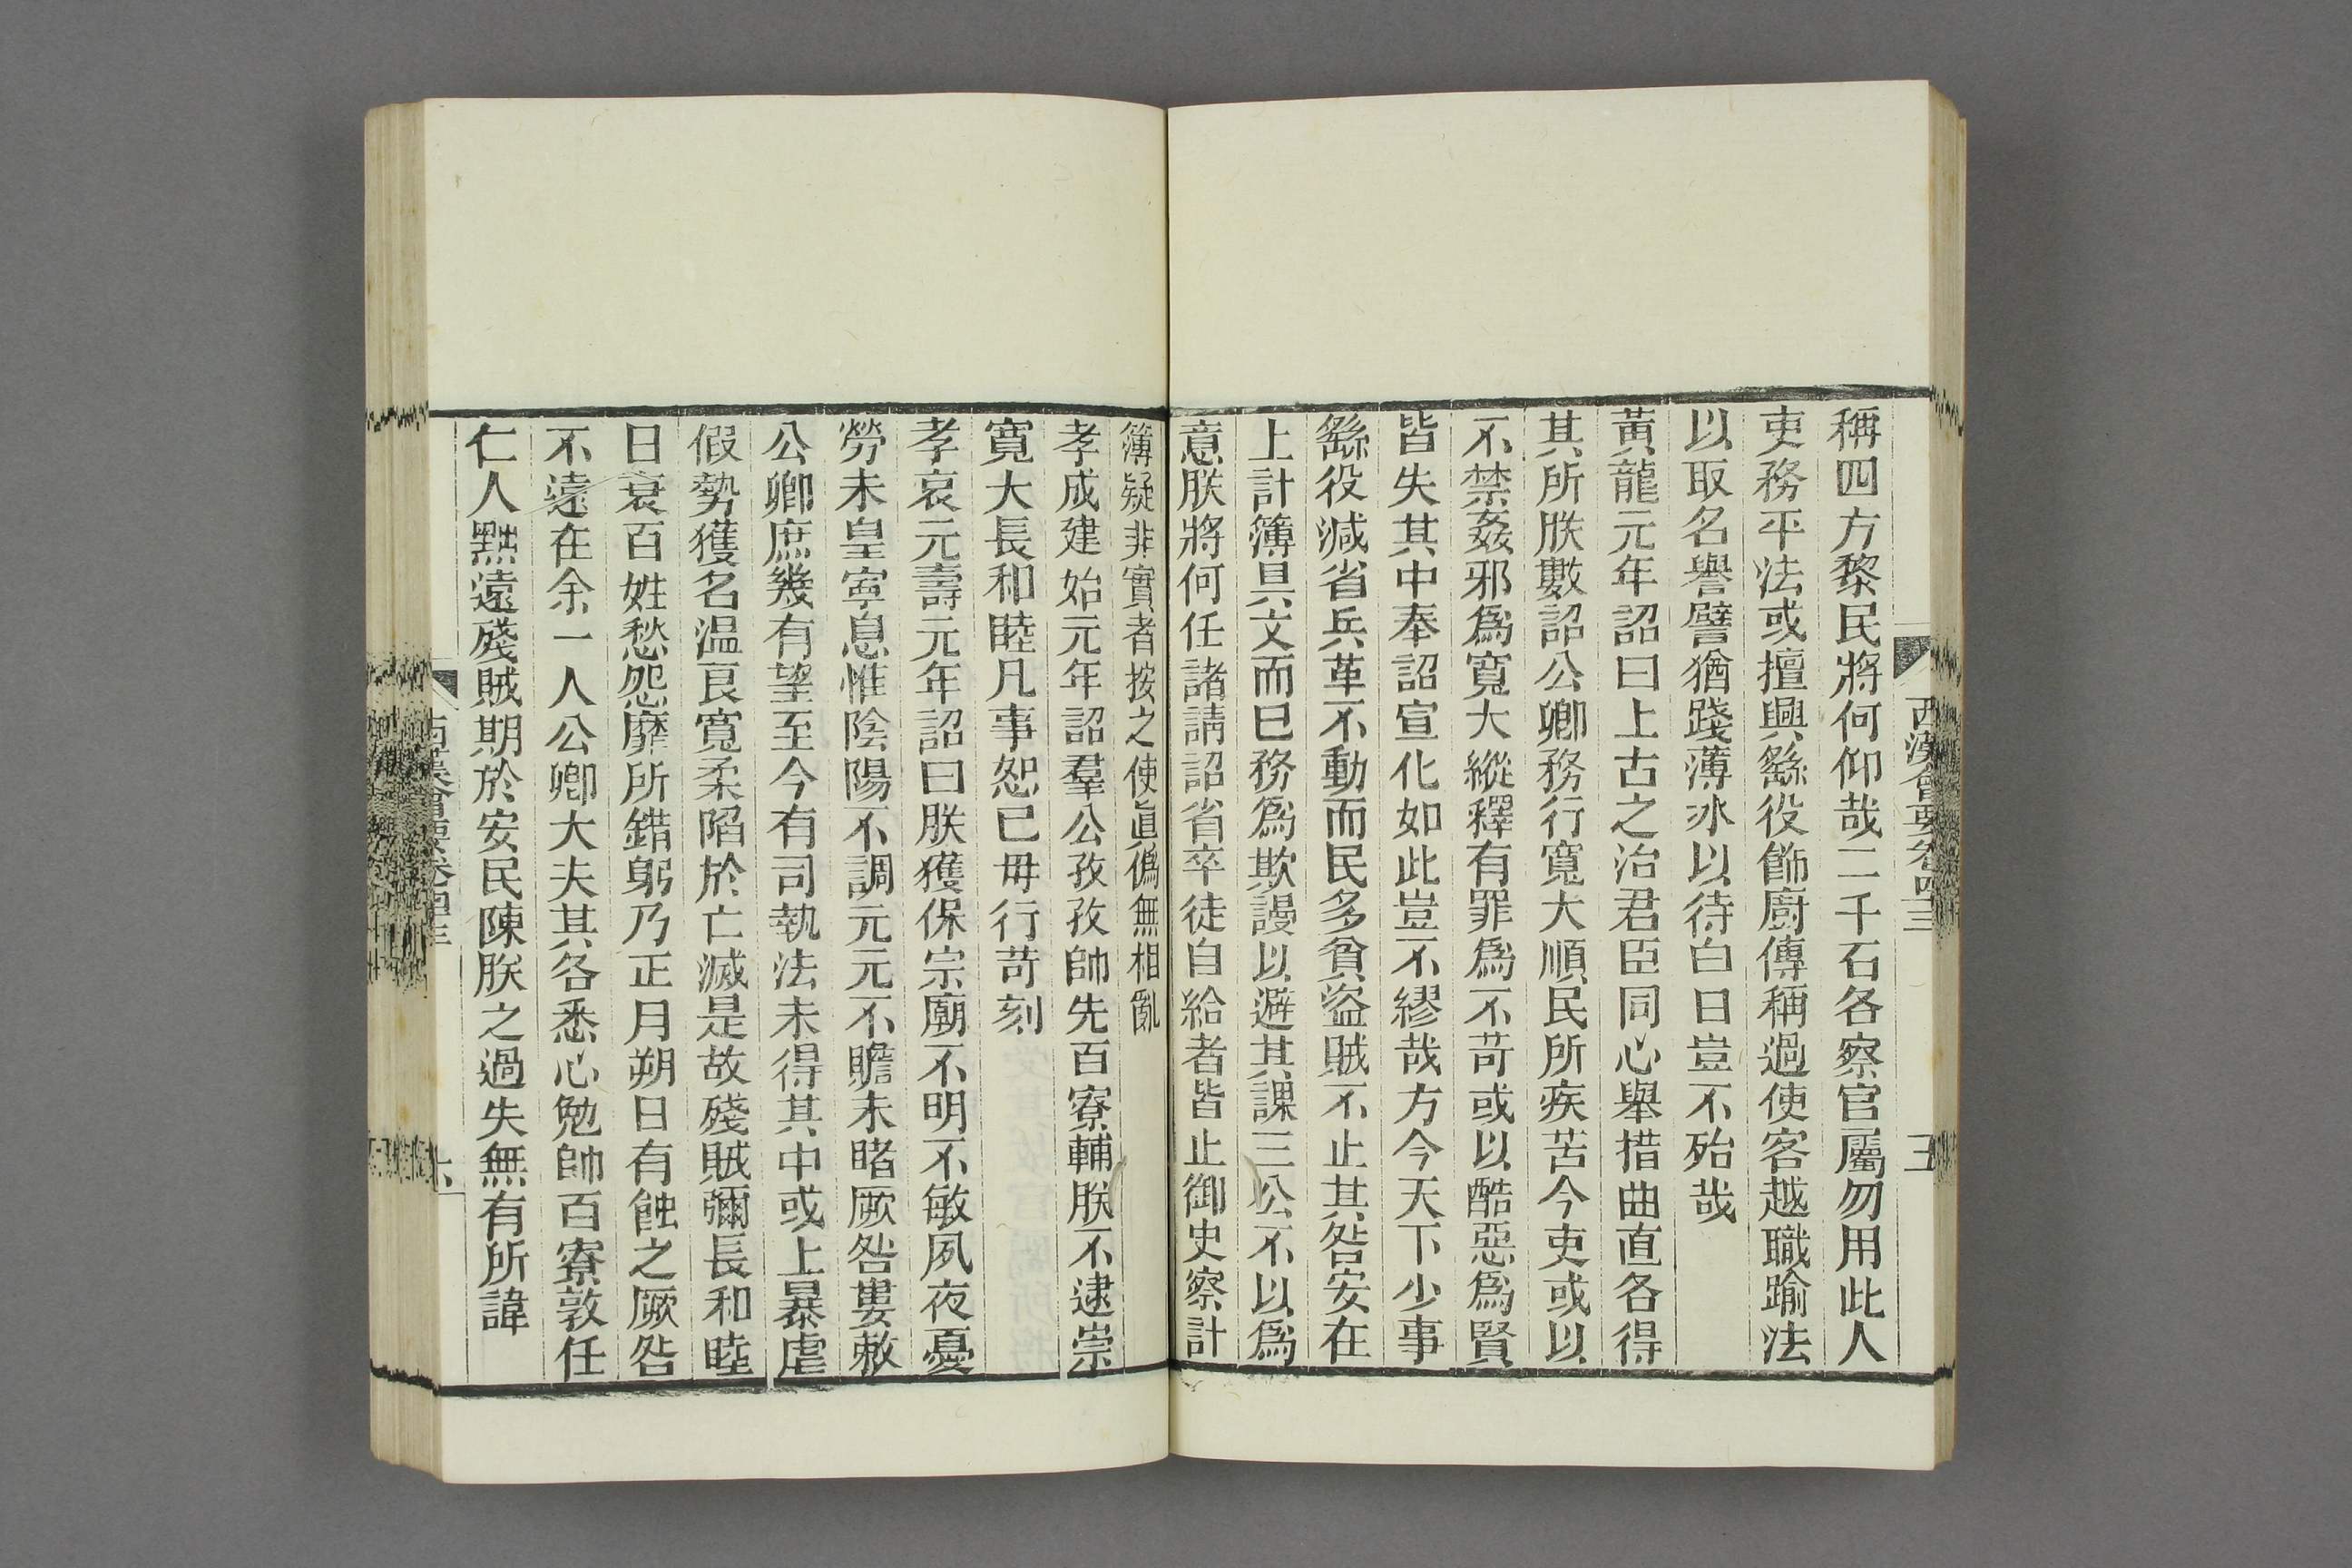 西漢會要卷四三
五
稱四方黎民將何仰哉二千石各察官屬勿用此人
吏務平法或擅興繇役飾廚傳稱過使客越職踰法
以取名譽譬猶踐薄冰以待白日豈不殆哉
黃龍元年詔曰上古之治君臣同心舉措曲直各得
其所朕數詔公卿務行寬大順民所疾苦今吏或以
不禁姦邪爲寬大縱釋有罪爲不苛或以酷惡爲賢
皆失其中奉詔宣化如此豈不繆哉方今天下少事
繇役減省兵革不動而民多貧盜賊不止其咎安在
上計簿具文而已務爲欺謾以避其課三公不以爲
意朕將何任諸請詔省卒徒自給者皆止御史察計
簿疑非實者按之使眞僞無相亂
孝成建始元年詔羣公孜孜帥先百寮輔朕不逮崇
寬大長和睦凡事恕己毋行苛刻
孝哀元壽元年詔曰朕獲保宗廟不明不敏夙夜憂
勞未皇寧息惟陰陽不調元元不贍未睹厥咎婁敕
公卿庶幾有望至今有司執法未得其中或上暴虐
假勢獲名温良寬柔陷於亡滅是故殘賊彌長和睦
日衰百姓愁怨靡所錯躬乃正月朔日有蝕之厥咎
不遠在余一人公卿大夫其各悉心勉帥百寮敦任
仁人黜遠殘賊期於安民陳朕之過失無有所諱